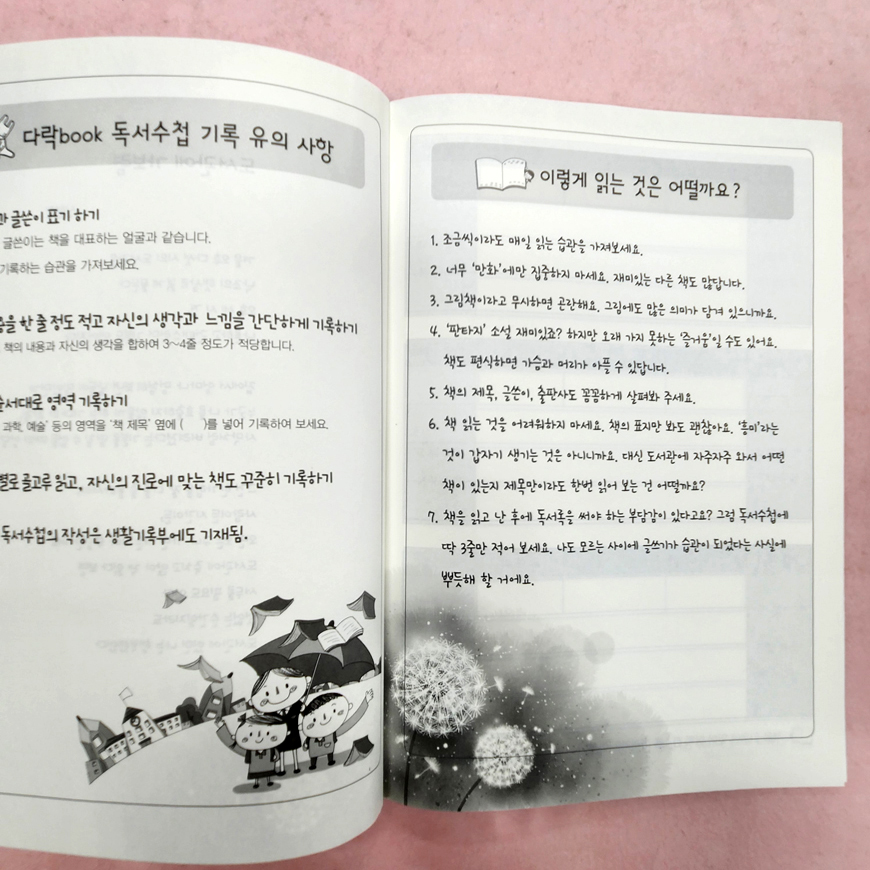 다락book 독서수첩 기록 유의 사항
글쓴이 표기 하기
글쓴이는 책을 대표하는 얼굴과 같습니다.
기록하는 습관을 가져보세요.
한 줄 정도 적고 자신의 생각과 느낌을 간단하게 기록하기
책의 내용과 자신의 생각을 합하여 3~4줄 정도가 적당합니다.
영역 기록하기
과학, 예술' 등의 영역을 '책 제목' 옆에 (    )를 넣어 기록하여 보세요.
골고루 읽고, 자신의 진로에 맞는 책도 꾸준히 기록하기
독서수첩의 작성은 생활기록부에도 기재됨.
이렇게 읽는 것은 어떨까요?
1. 조금씩이라도 매일 읽는 습관을 가져보세요.
2. 너무 '만화'에만 집중하지 마세요. 재미있는 다른 책도 많답니다.
3. 그림책이라고 무시하면 곤란해요. 그림에도 많은 의미가 담겨 있으니까요.
4. '판타지' 소설 재미있죠? 하지만 오래 가지 못하는 '즐거움'일 수도 있어요.
책도 편식하면 가슴과 머리가 아플 수 있답니다.
5. 책의 제목, 글쓴이, 출판사도 꼼꼼하게 살펴봐 주세요.
6. 책 읽는 것을 어려워하지 마세요. 책의 표지만 봐도 괜찮아요. '흥미'라는
것이 갑자기 생기는 것은 아니니까요. 대신 도서관에 자주자주 와서 어떤
책이 있는지 제목만이라도 한번 읽어 보는 건 어떨까요?
7. 책을 읽고 난 후에 독서록을 써야 하는 부담감이 있다고요? 그럼 독서수첩에
딱 3줄만 적어 보세요. 나도 모르는 사이에 글쓰기가 습관이 되었다는 사실에
뿌듯해 할 거에요.